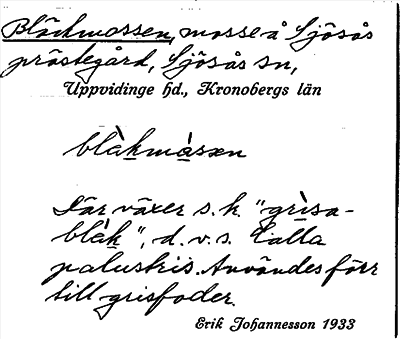 Bläckmossen, mosse å Sjösås
prästegård, Sjösås sn,
Uppvidinge hd., Kronobergs län
blàkmåsen
Där växer s.k. "grisa-
bläk", d.v.s. Calla
palustris. Användes förr
till grisfoder.
Erik Johannesson 1933